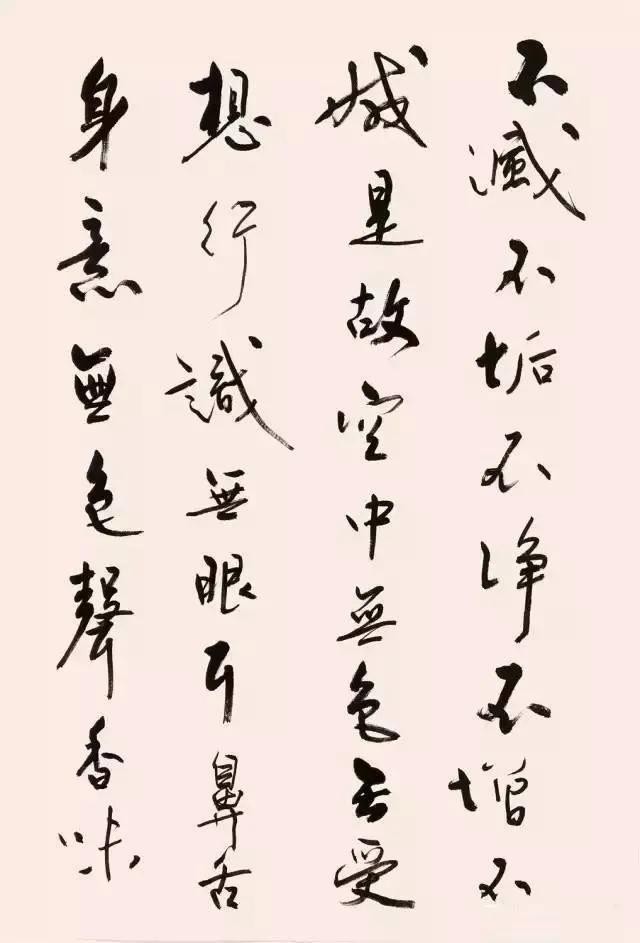 不滅不垢不净不增不
減是故空中無色無受
想行識無眼耳鼻舌
身意無色聲香味